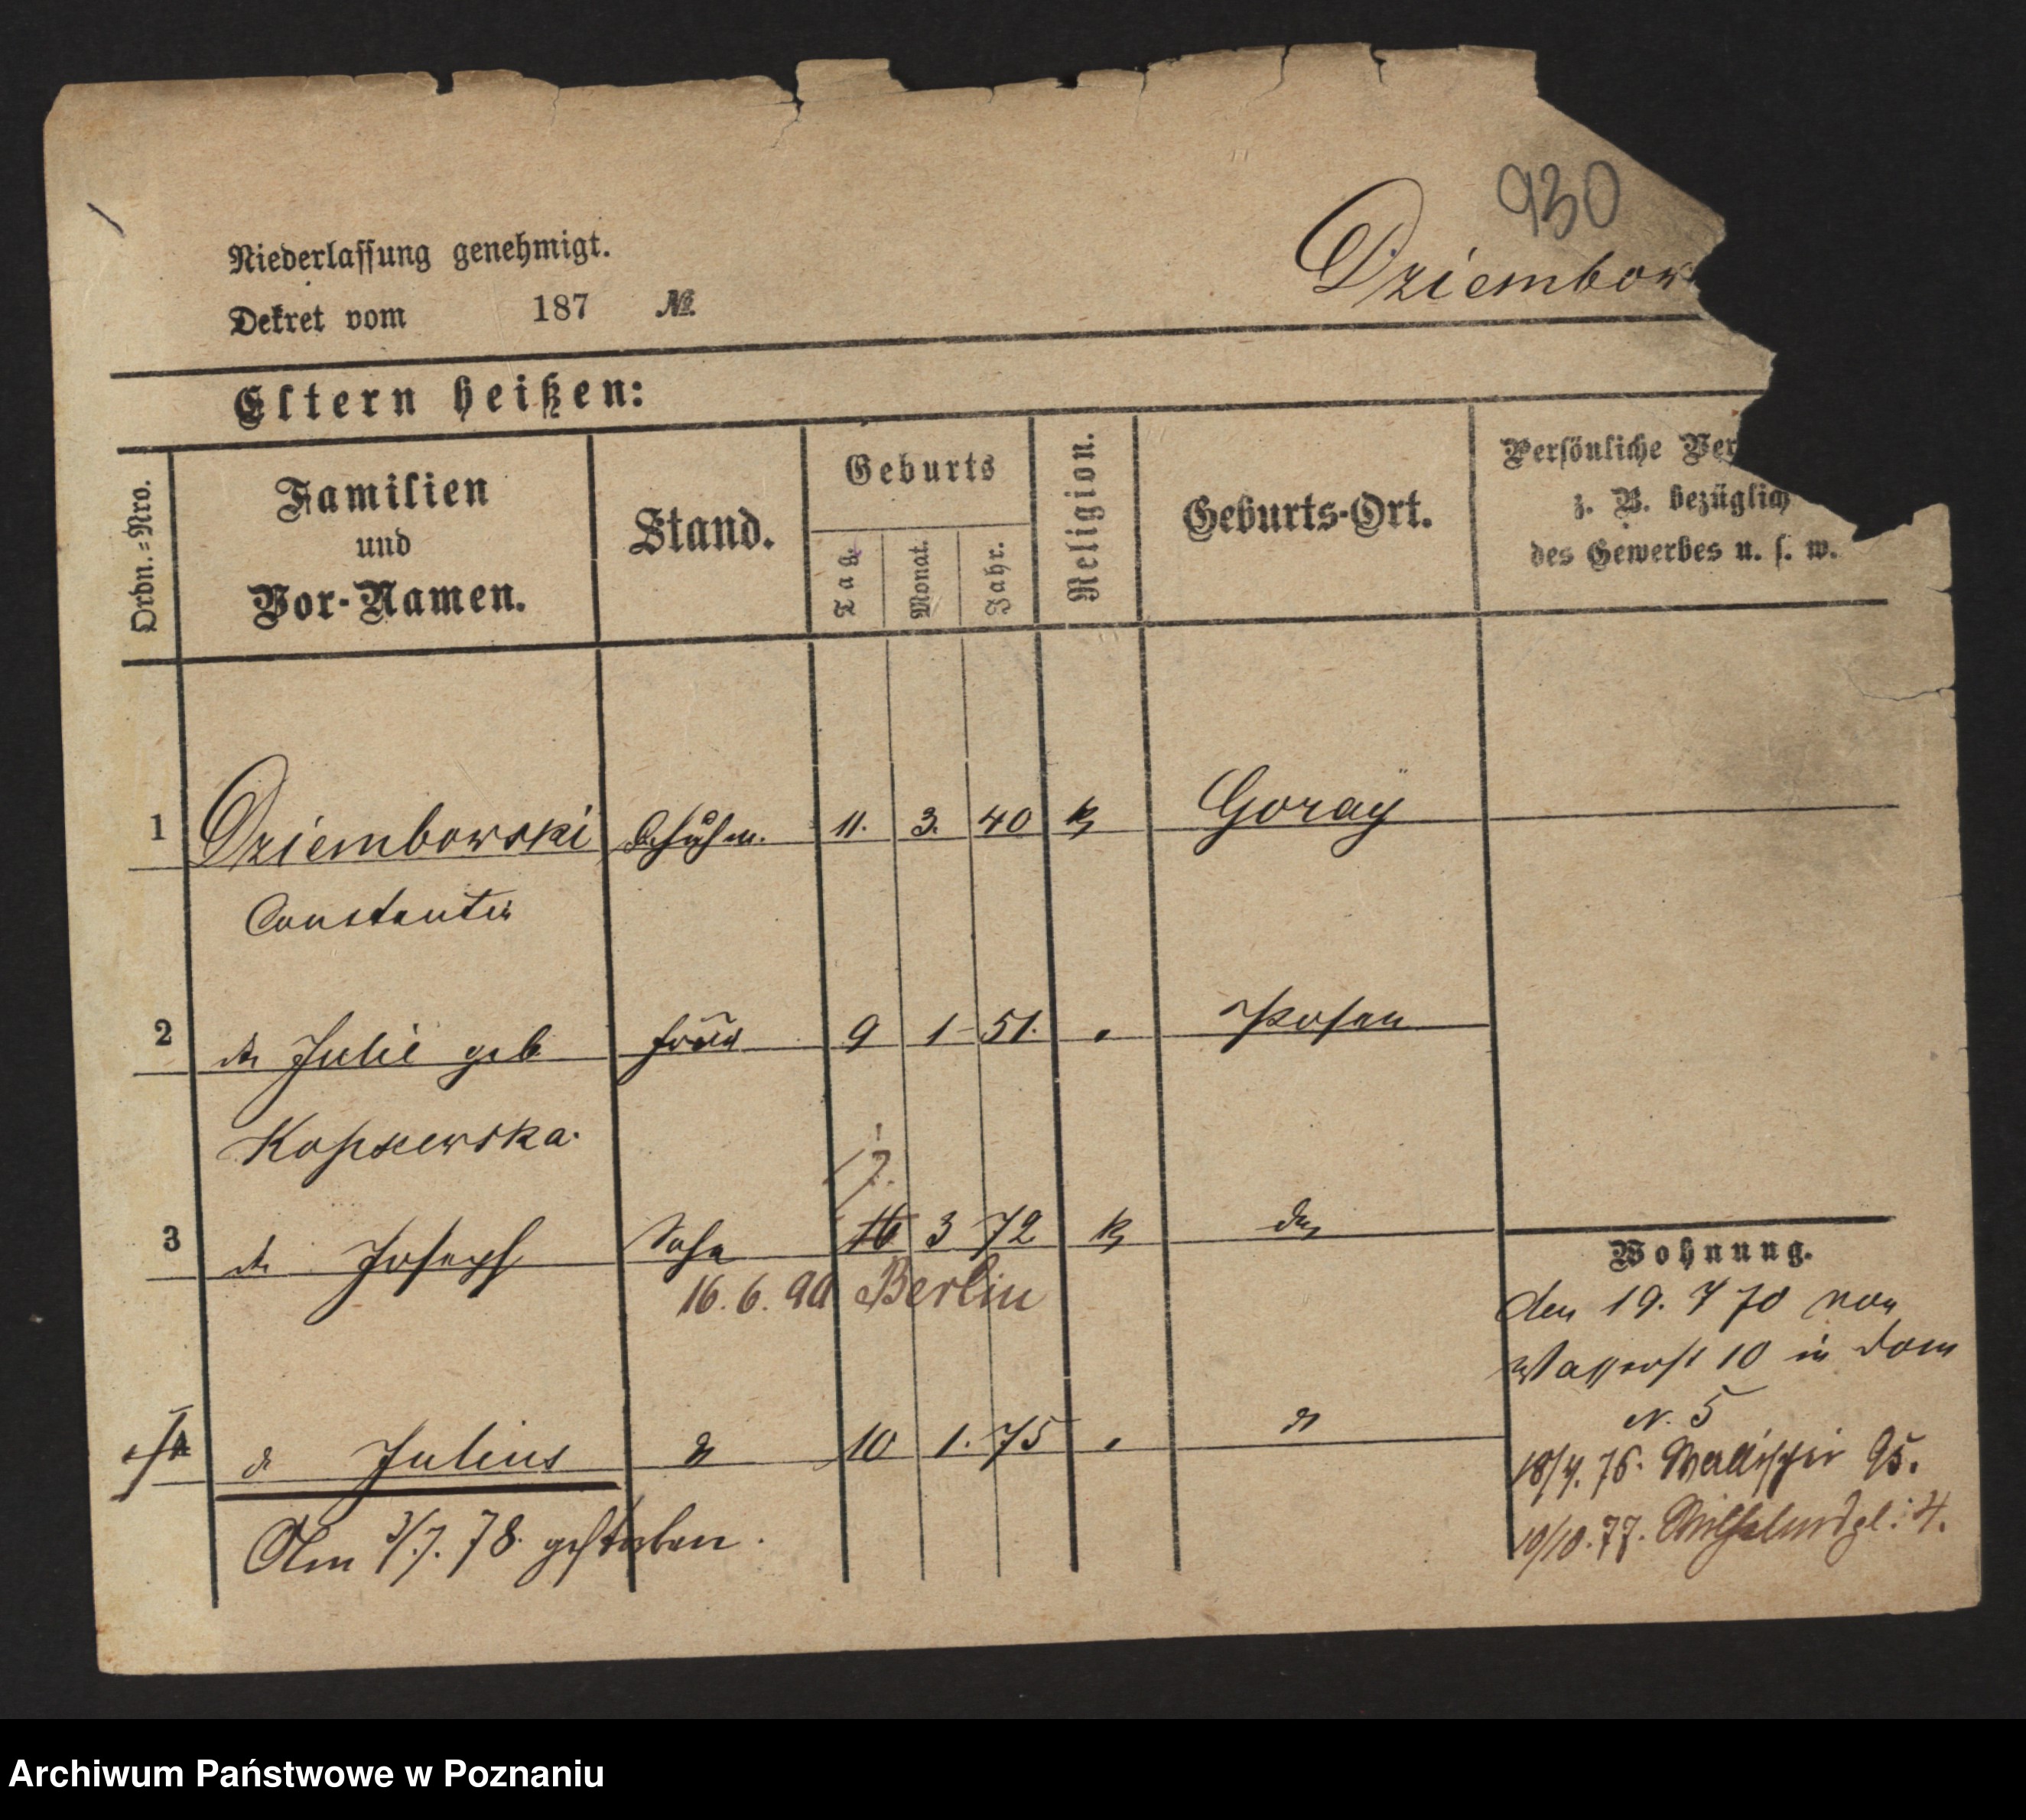 930
Dziembow
Niederlassung genehmigt.
Dekret vom 187 №
Eltern heißen:
Ordn.-Nro. Familien und Vor-Namen. Stand. Geburts Tag. Monat. Jahr. Religion. Geburts-Ort. Persönliche Ver
z. B. bezüglich
des Gewerbes u. s. w.
1 Dziembowski 11. 3. 40 k Goray
Constantin
2 Julie geb Frau 9 1 51. " Posen
Kopszewska
3 Joseph Sohn 17. 16 3 72 k do
16. 6. 90 Berlin
Wohnung.
den 19. 7 70 von
Wasserst 10 in Dom
N. 5
4 d Julius d 10 1. 75 " d
18/4. 76. 95.
Am 3/7. 78. gestorben.
10/10. 77. Wilhelmspl: 4.
Archiwum Państwowe w Poznaniu